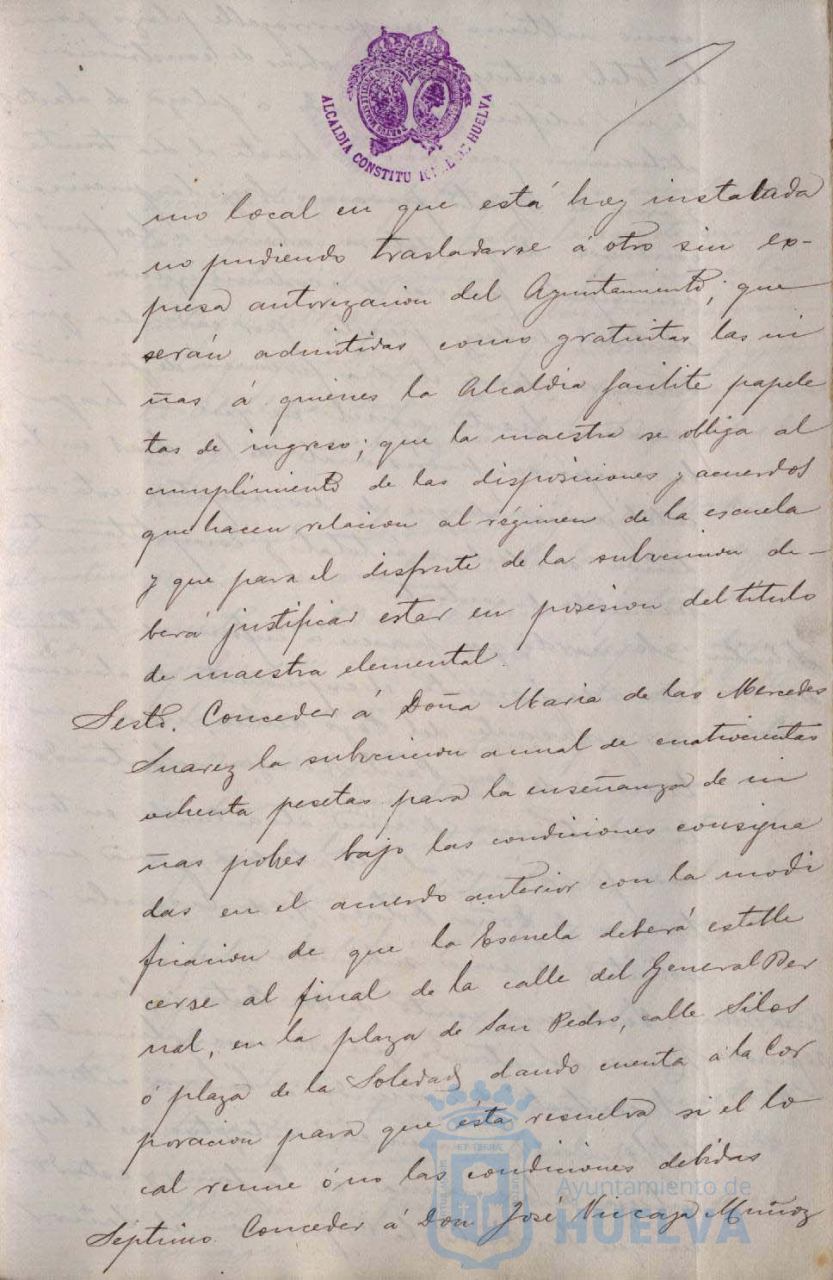 ALCALDIA CONSTITUCIONAL DE HUELVA
mo local en que está hoy instalada
no pudiendo trasladarse á otro sin ex-
presa autorizacion del Ayuntamiento; que
serán admitidas como gratuitas las ni
ñas á quienes la Alcaldia facilite papele
tas de ingreso; que la maestra se obliga al
cumplimiento de las disposiciones y acuerdos
que hacen relacion al régimen de la escuela
y que para el disfrute de la subvencion de-
berá justificar estar en posesion del título
de maestra elemental.
Sesto. Conceder á Doña Maria de las Mercedes
Suarez la subvencion annal de cuatrocientas
ochenta pesetas para la enseñanza de ni
ñas pobres bajo las condiciones consigna
das en el acuerdo anterior con la modi
ficacion de que la Escuela deberá estable
cerse al final de la calle del General Ber
nal, en la plaza de San Pedro, calle Silos
ó plaza de la Soledad dando cuenta á la Cor
poracion para que ésta resuelva si el lo
cal reune ó no las condiciones debidas
Séptimo. Conceder á Don José Vizcaya Muñoz
Ayuntamiento de
HUELVA